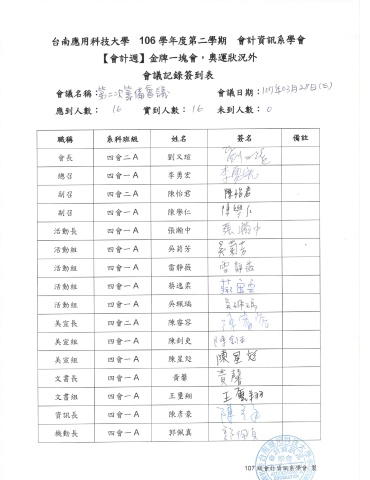 台南應用科技大學 106 學年度第二學期 會計資訊系學會
【會計週】金牌一塊會，奧運狀況外
會議記錄簽到表
會議名稱：第二次籌備會議 會議日期：107年03月28日(三)
應到人數： 16 實到人數： 16 未到人數： 0
職稱 系科班級 姓名 簽名 備註
會長 四會二A 劉又瑄
總召 四會一A 李勇宏
副召 四會二A 陳怡君 陳怡君
副召 四會一A 陳學仁 陳學仁
活動長 四會一A 張瀚中 張瀚中
活動組 四會一A 吳菊芳 吳菊芳
活動組 四會一A 雷靜薇 雷靜薇
活動組 四會一A 蔡逸柔
活動組 四會一A 吳珮瑀 吳珮瑀
美宣長 四會二A 陳睿容 陳睿容
美宣組 四會一A 陳釗更
美宣組 四會一A 陳星彣 陳星彣
文書長 四會一A 黃馨 黃馨
文書組 四會一A 王璽翔 王璽翔
資訊長 四會一A 陳彥豪
機動長 四會一A 郭佩真
107 級會計資訊系學會 製